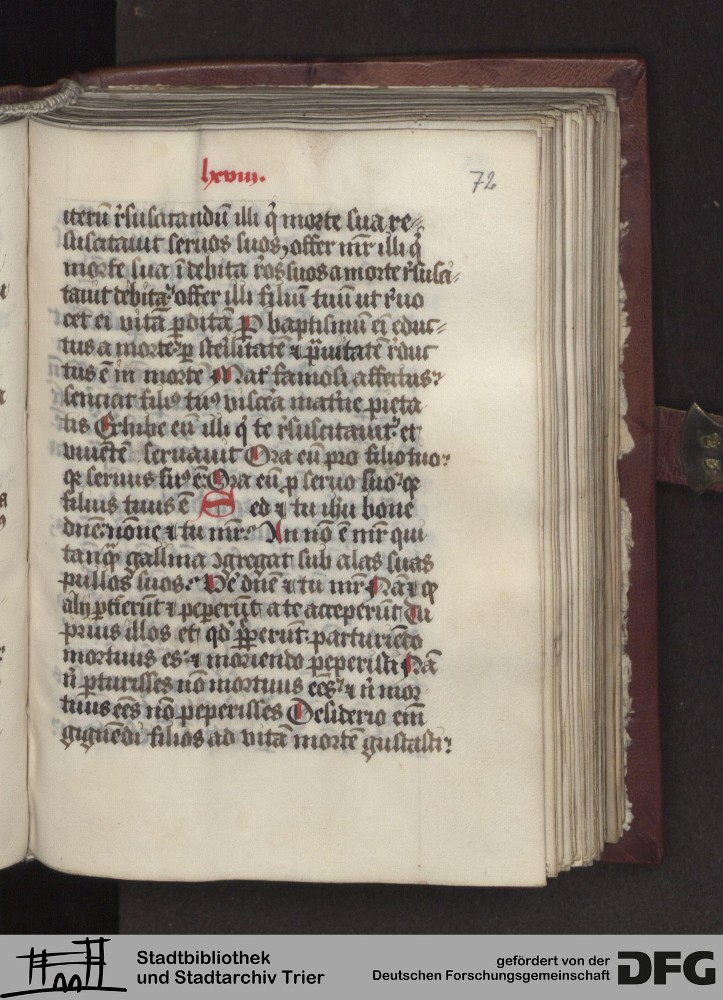 lxviii.
72
iterū r̄suscitandū illi q̄ morte sua re⸗
suscitauit seruos suos, offer mr̄ illi q̄
morte sua īdebita s̄uos suos a morte r̄suscī⸗
tauit debita. offer illi filiū tuū ut r̄uo
cet ei vitā ꝑditā P baptismū eī educ⸗
tus a morte. ꝑ sterilitatē ⁊ p̄uitatē r̄duc
tus ē in morte Mat̄ famosi affectus.
senciat filiꝰ tuꝰ viscēa mat̄ne pieta
tis Exhibe eū illi q̄ te r̄suscitauit. et
viuētē seruauit Ora eū pro filio tuo.
qꝛ seruus suꝰ ē. Ora eū ꝑ seruo suo. qꝛ
filius tuus ē Sed ⁊ tu ihū bone
dn̄e. nōne ⁊ tu mr̄. An nō ē mr̄ qui
tanq̄ gallina ꝯgregat sub alas suas
pullos suos. Ve dn̄e ⁊ tu mr̄ Nā ⁊ qꝛ
alij ꝑtierūt ⁊ pepererūt a te acceperūt Tu
prius illos et qd̓ ꝑꝑerūt. parturiēdo
mortuus es. ⁊ moriendo peperisti Nā
n̄ ꝑturisses nō mortuus eēs. ⁊ n̄ mor
tuus eēs nō peperisses Desiderio eīn
gignēdi filios ad vitā mortē gustasti.
Stadtbibliothek
und Stadtarchiv Trier
gefördert von der
Deutschen Forschungsgemeinschaft
DFG